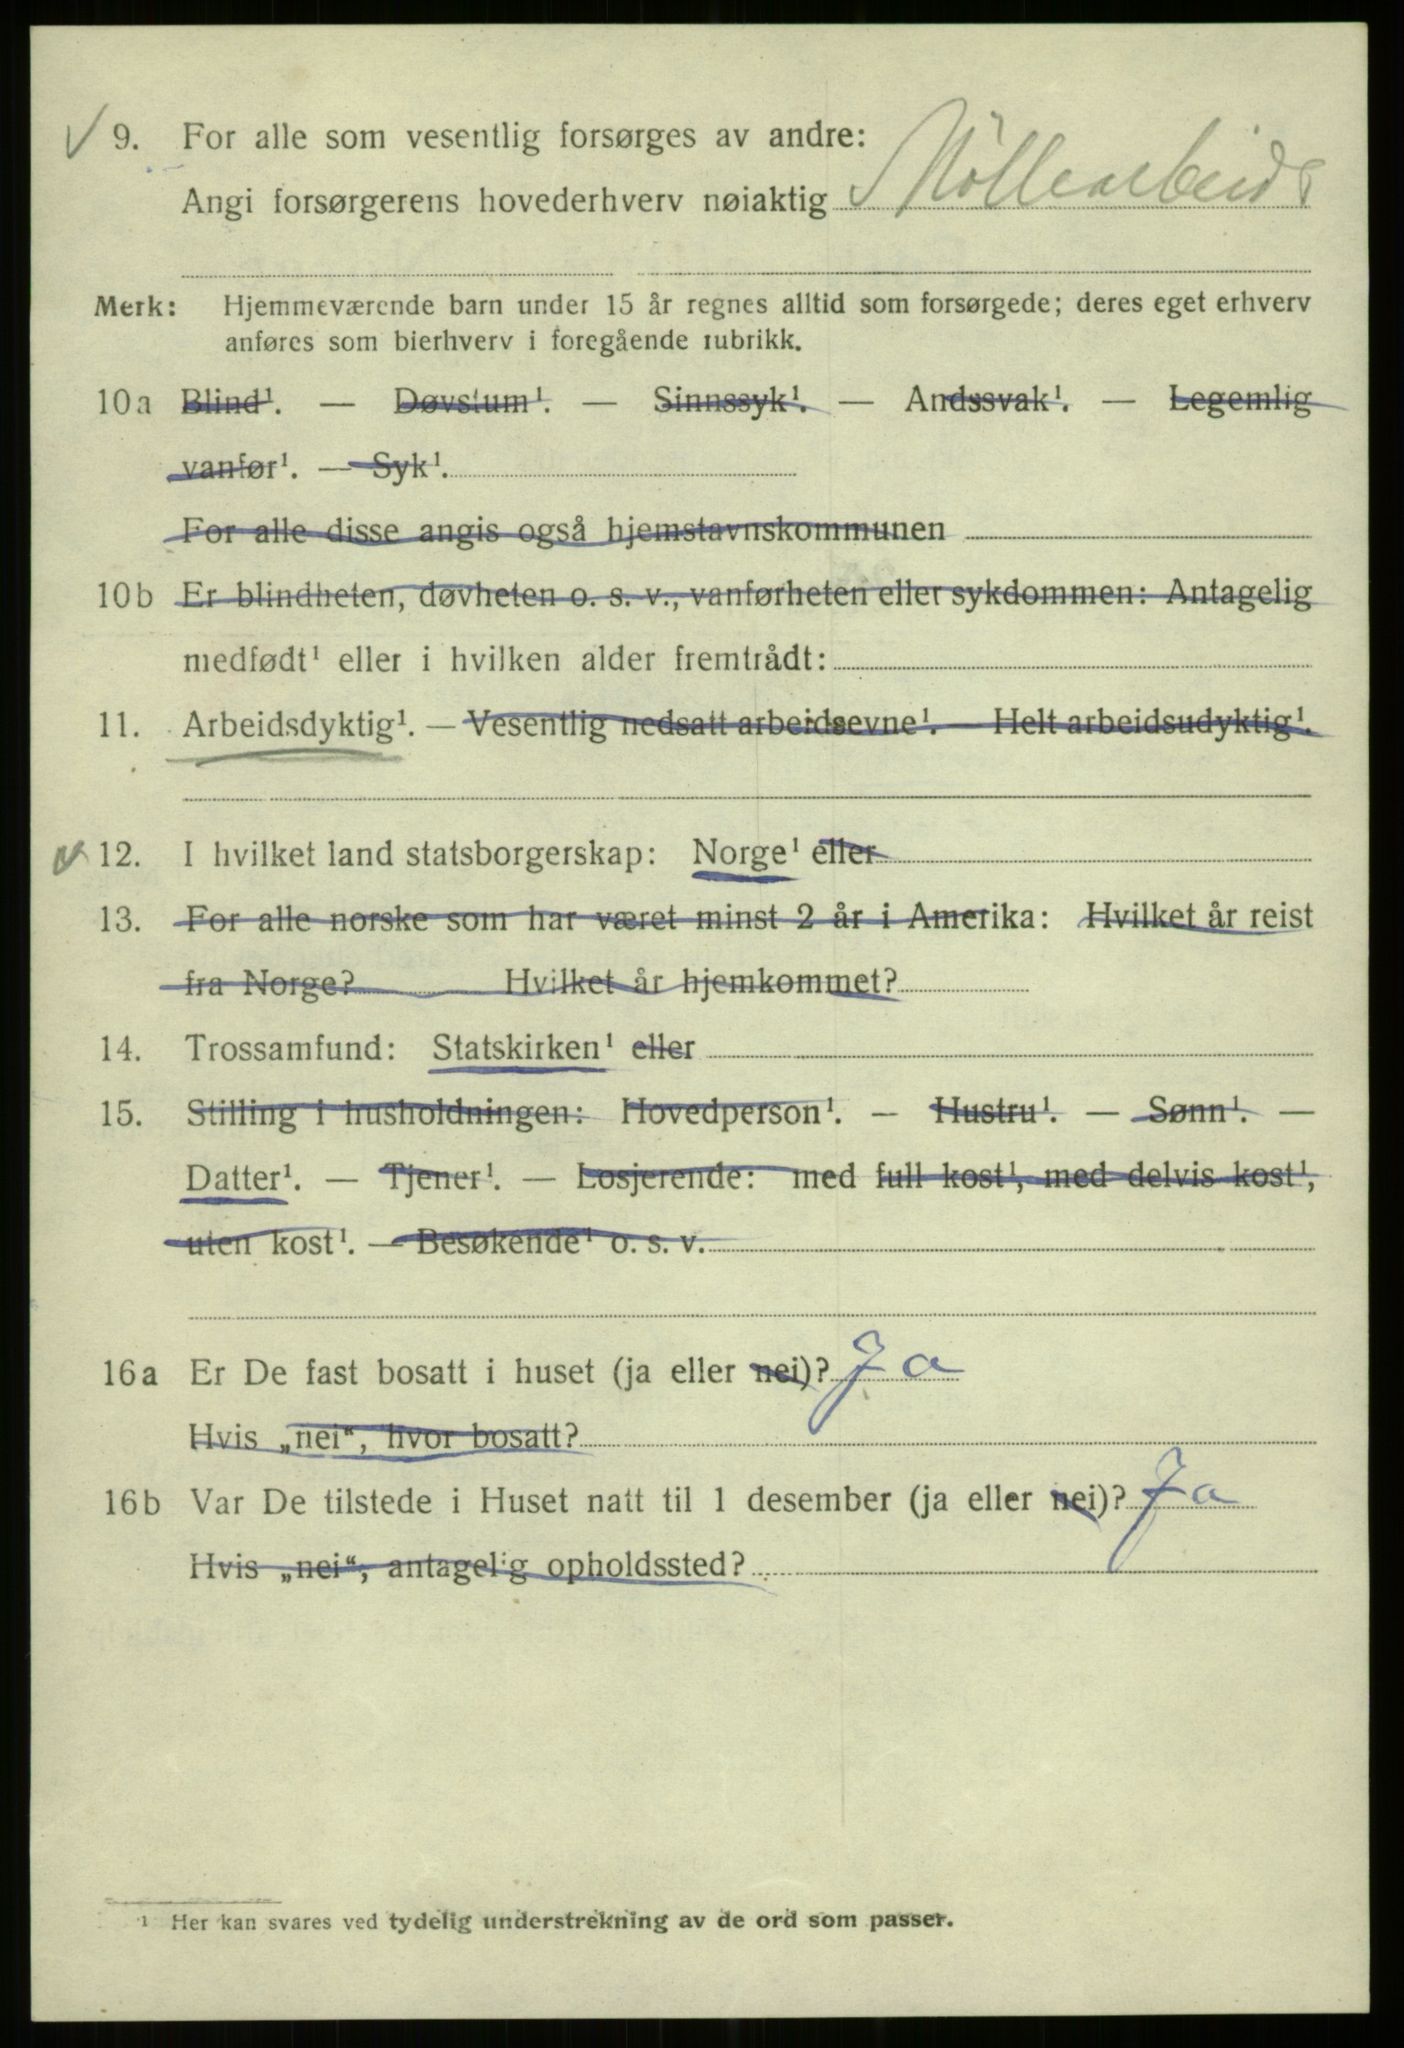 9. For alle som vesentlig forsørges av andre:
Angi forsørgerens hovederhverv nøiaktig Møllearbeid
Merk: Hjemmeværende barn under 15 år regnes alltid som forsørgede; deres eget erhverv
anføres som bierhverv i foregående rubrikk.
10a Blind¹. — Døvstum¹. — Sinnssyk¹. — Andssvak¹. — Legemlig
vanfør¹. — Syk¹.
For alle disse angis også hjemstavnskommunen
10b Er blindheten, døvheten o. s. v., vanførheten eller sykdommen: Antagelig
medfødt¹ eller i hvilken alder fremtrådt:
11. Arbeidsdyktig¹. — Vesentlig nedsatt arbeidsevne¹. — Helt arbeidsudyktig¹.
12. I hvilket land statsborgerskap: Norge¹ eller
13. For alle norske som har været minst 2 år i Amerika: Hvilket år reist
fra Norge? Hvilket år hjemkommet?
14. Trossamfund: Statskirken¹ eller
15. Stilling i husholdningen: Hovedperson¹. — Hustru¹. — Sønn¹. —
Datter¹. — Tjener¹. — Losjerende: med full kost¹, med delvis kost¹,
uten kost¹. — Besøkende¹ o. s. v.
16a Er De fast bosatt i huset (ja eller nei)? Ja
Hvis „nei“, hvor bosatt?
16b Var De tilstede i Huset natt til 1 desember (ja eller nei)? Ja
Hvis „nei“, antagelig opholdssted?
¹ Her kan svares ved tydelig understrekning av de ord som passer.